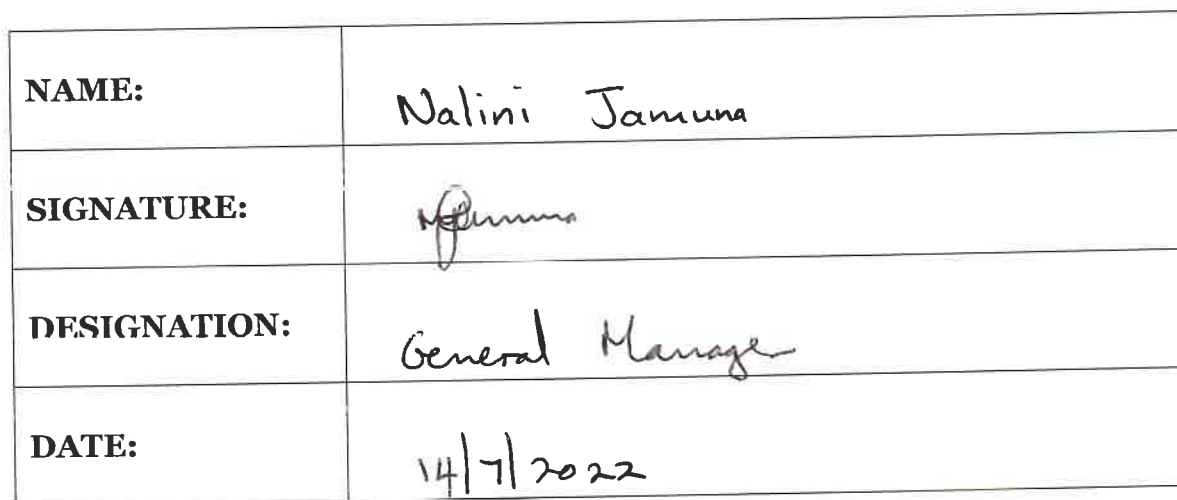 NAME: Nalini Jamuna
SIGNATURE:
DESIGNATION: General Manager
DATE: 14/7/2022